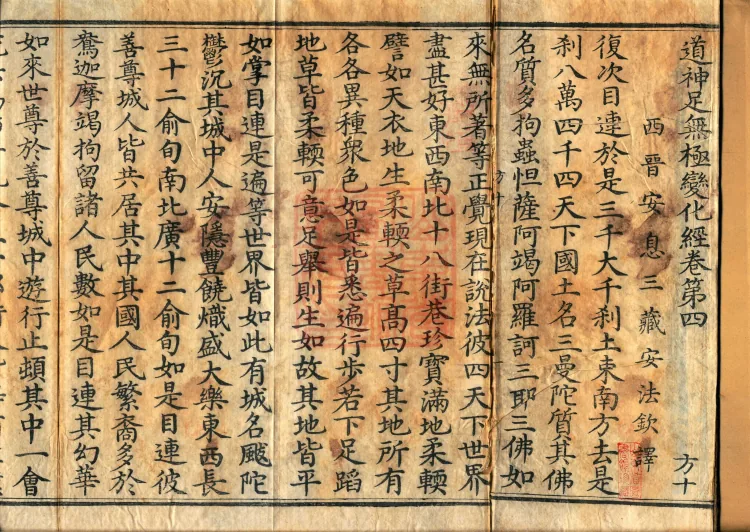 道神足無極變化經卷第四
方十
西晉安息三藏安法欽譯
復次目連於是三千大千刹土東南方去是
刹八萬四千四天下國土名三曼陀質其佛
名質多拘蟲怛薩阿竭阿羅訶三耶三佛如
來無所著等正覺現在說法彼四天下世界
盡甚好東西南北十八街巷珍寶滿地柔輭
譬如天衣地生柔輭之草高四寸其地所有
各各異種衆色如是皆悉遍行步若下足蹈
地草皆柔輭可意足舉則生如故其地皆平
如掌目連是遍等世界皆如此有城名颰陀
鬱沉其城中人安隱豐饒熾盛大樂東西長
三十二俞旬南北廣十二俞旬如是目連彼
善尊城人皆共居其中其國人民繁裔多於
鴦迦摩竭拘留諸人民數如是目連其幻華
如來世尊於善尊城中遊行止頓其中一會